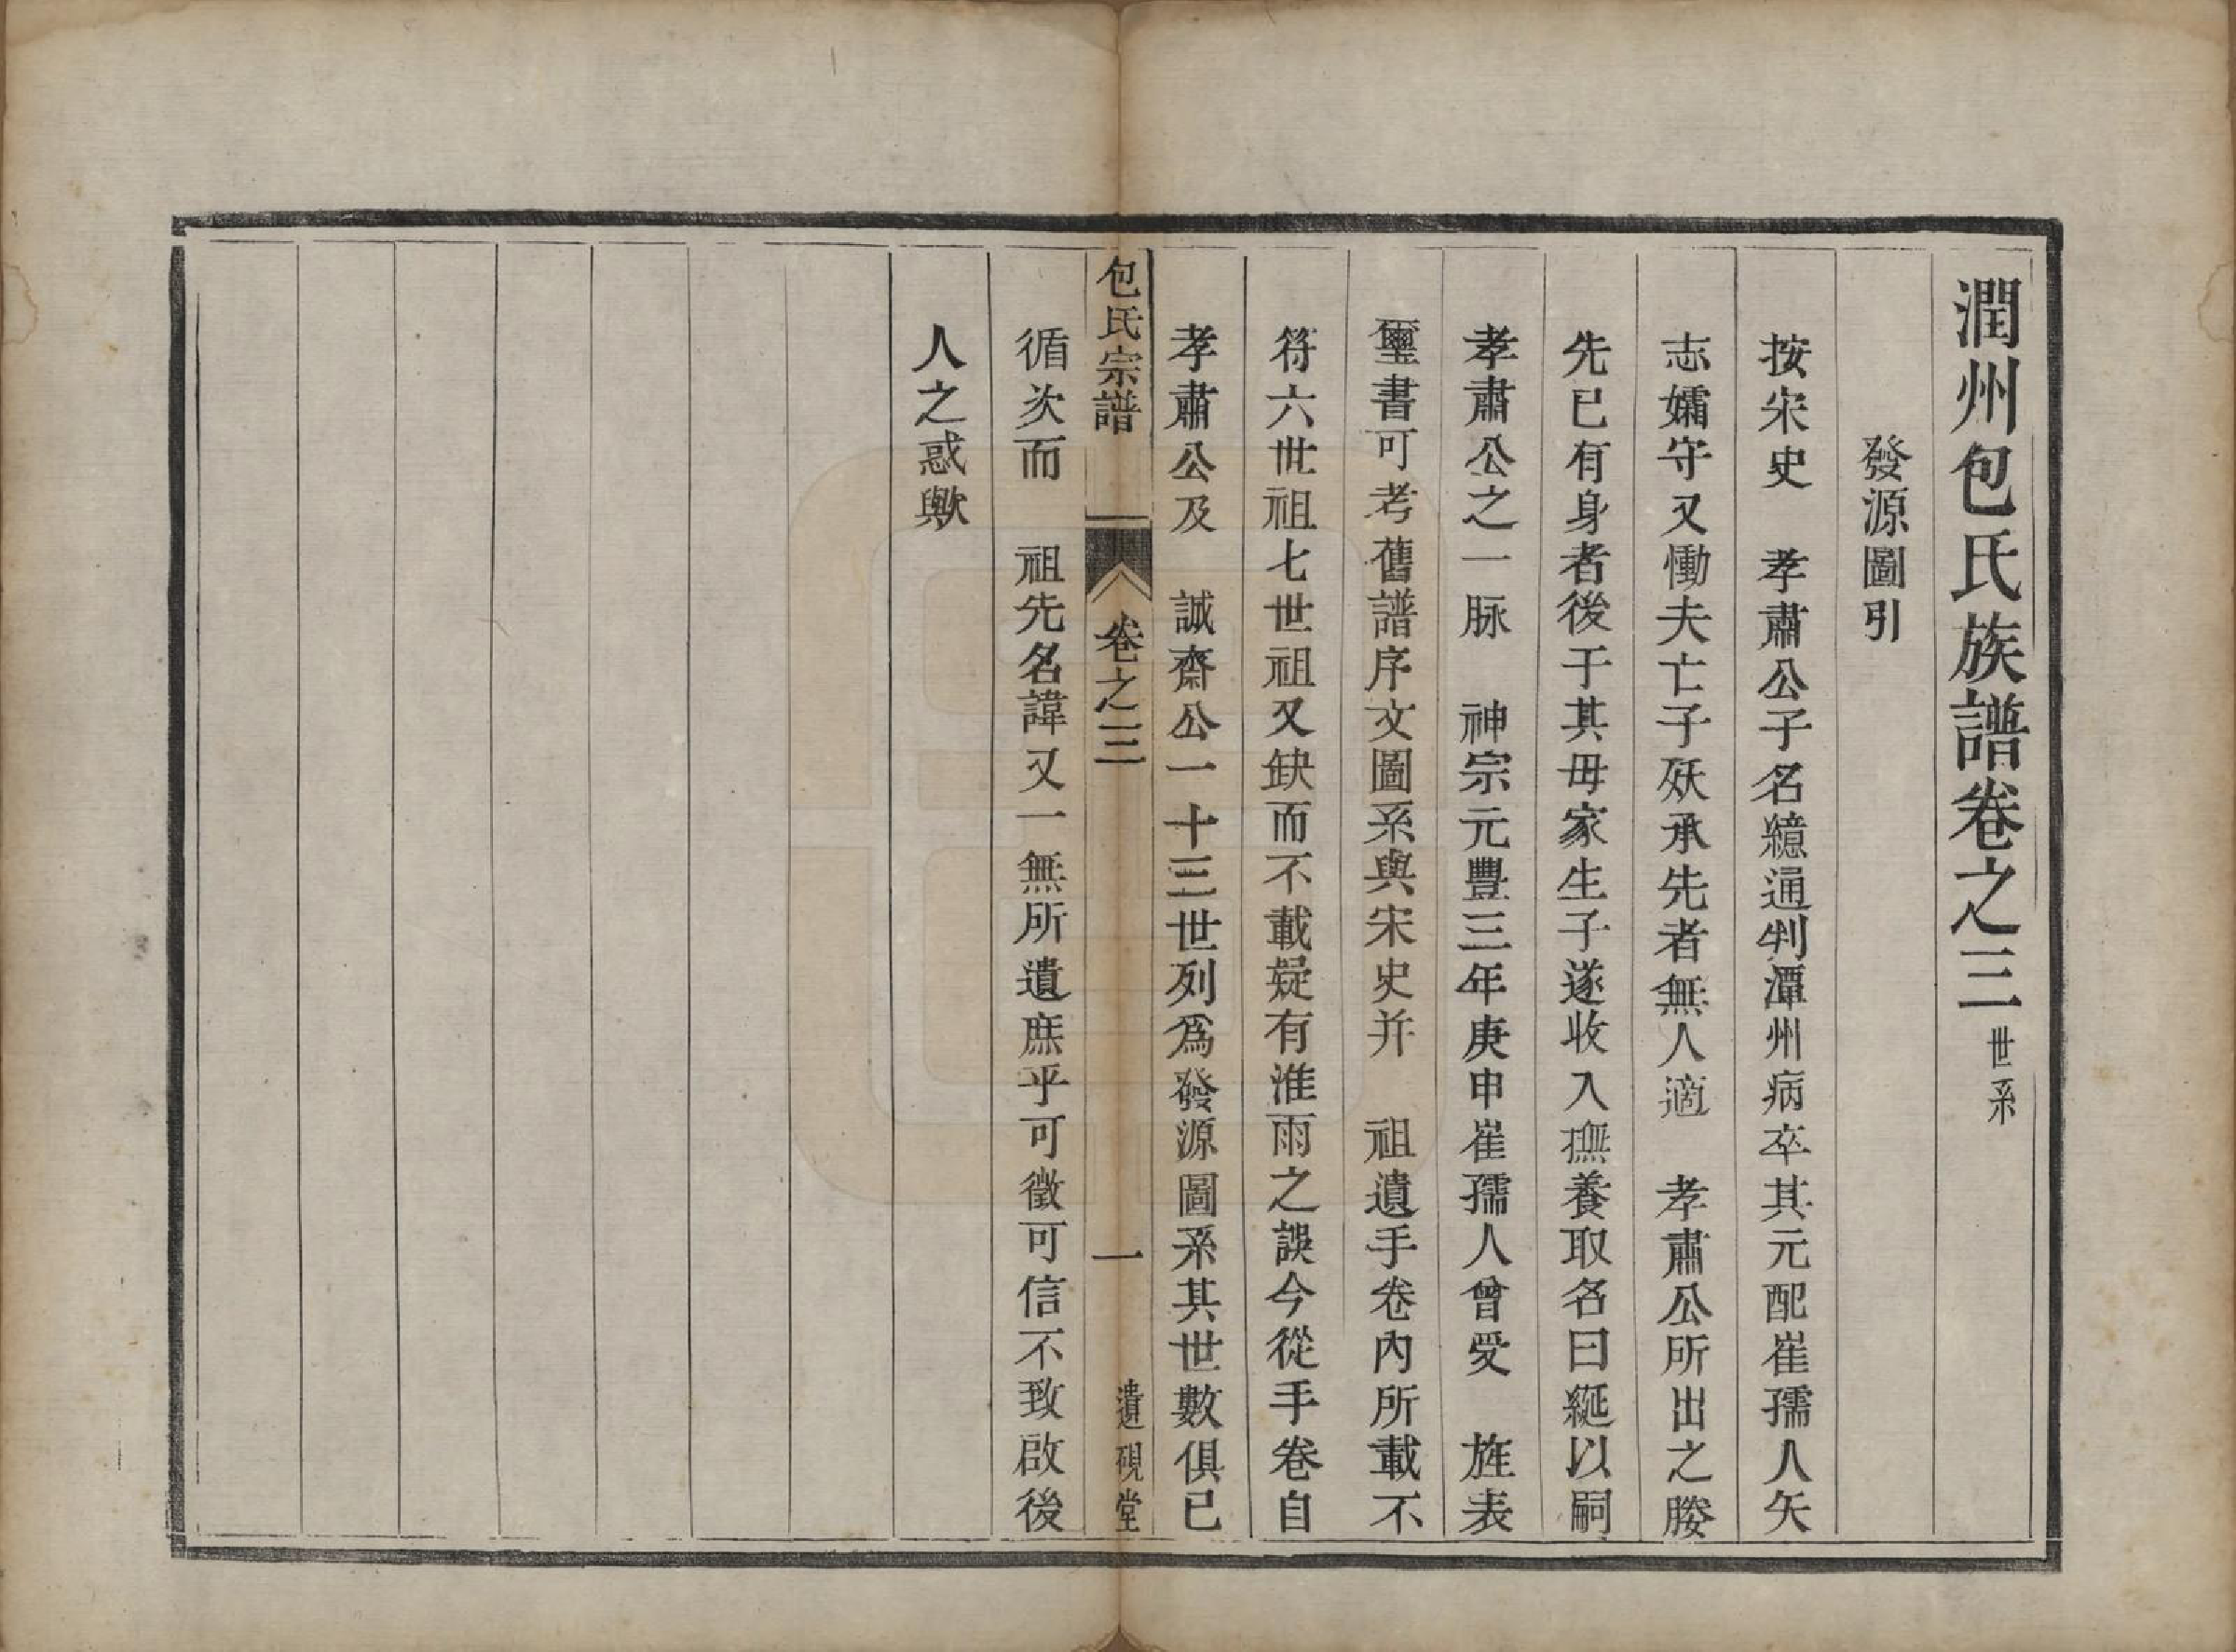 潤州包氏族譜卷之三 世系
發源圖引
按宋史 孝肅公子名繶通判潭州病卒其元配崔孺人矢
志孀守又慟夫亡子殀承先者無人適 孝肅公所出之媵
先已有身者後于其母家生子遂收入撫養取名曰綖以嗣
孝肅公之一脉 神宗元豐三年庚申崔孺人曾受 旌表
璽書可考舊譜序文圖系與宋史并 祖遺手卷內所載不
符六世祖七世祖又缺而不載疑有淮雨之誤今從手卷自
孝肅公及 誠齋公一十三世列爲發源圖系其世數俱已
包氏宗譜 卷之三 一 遺硯堂
循次而 祖先名諱又一無所遺庶乎可徵可信不致啟後
人之惑歟